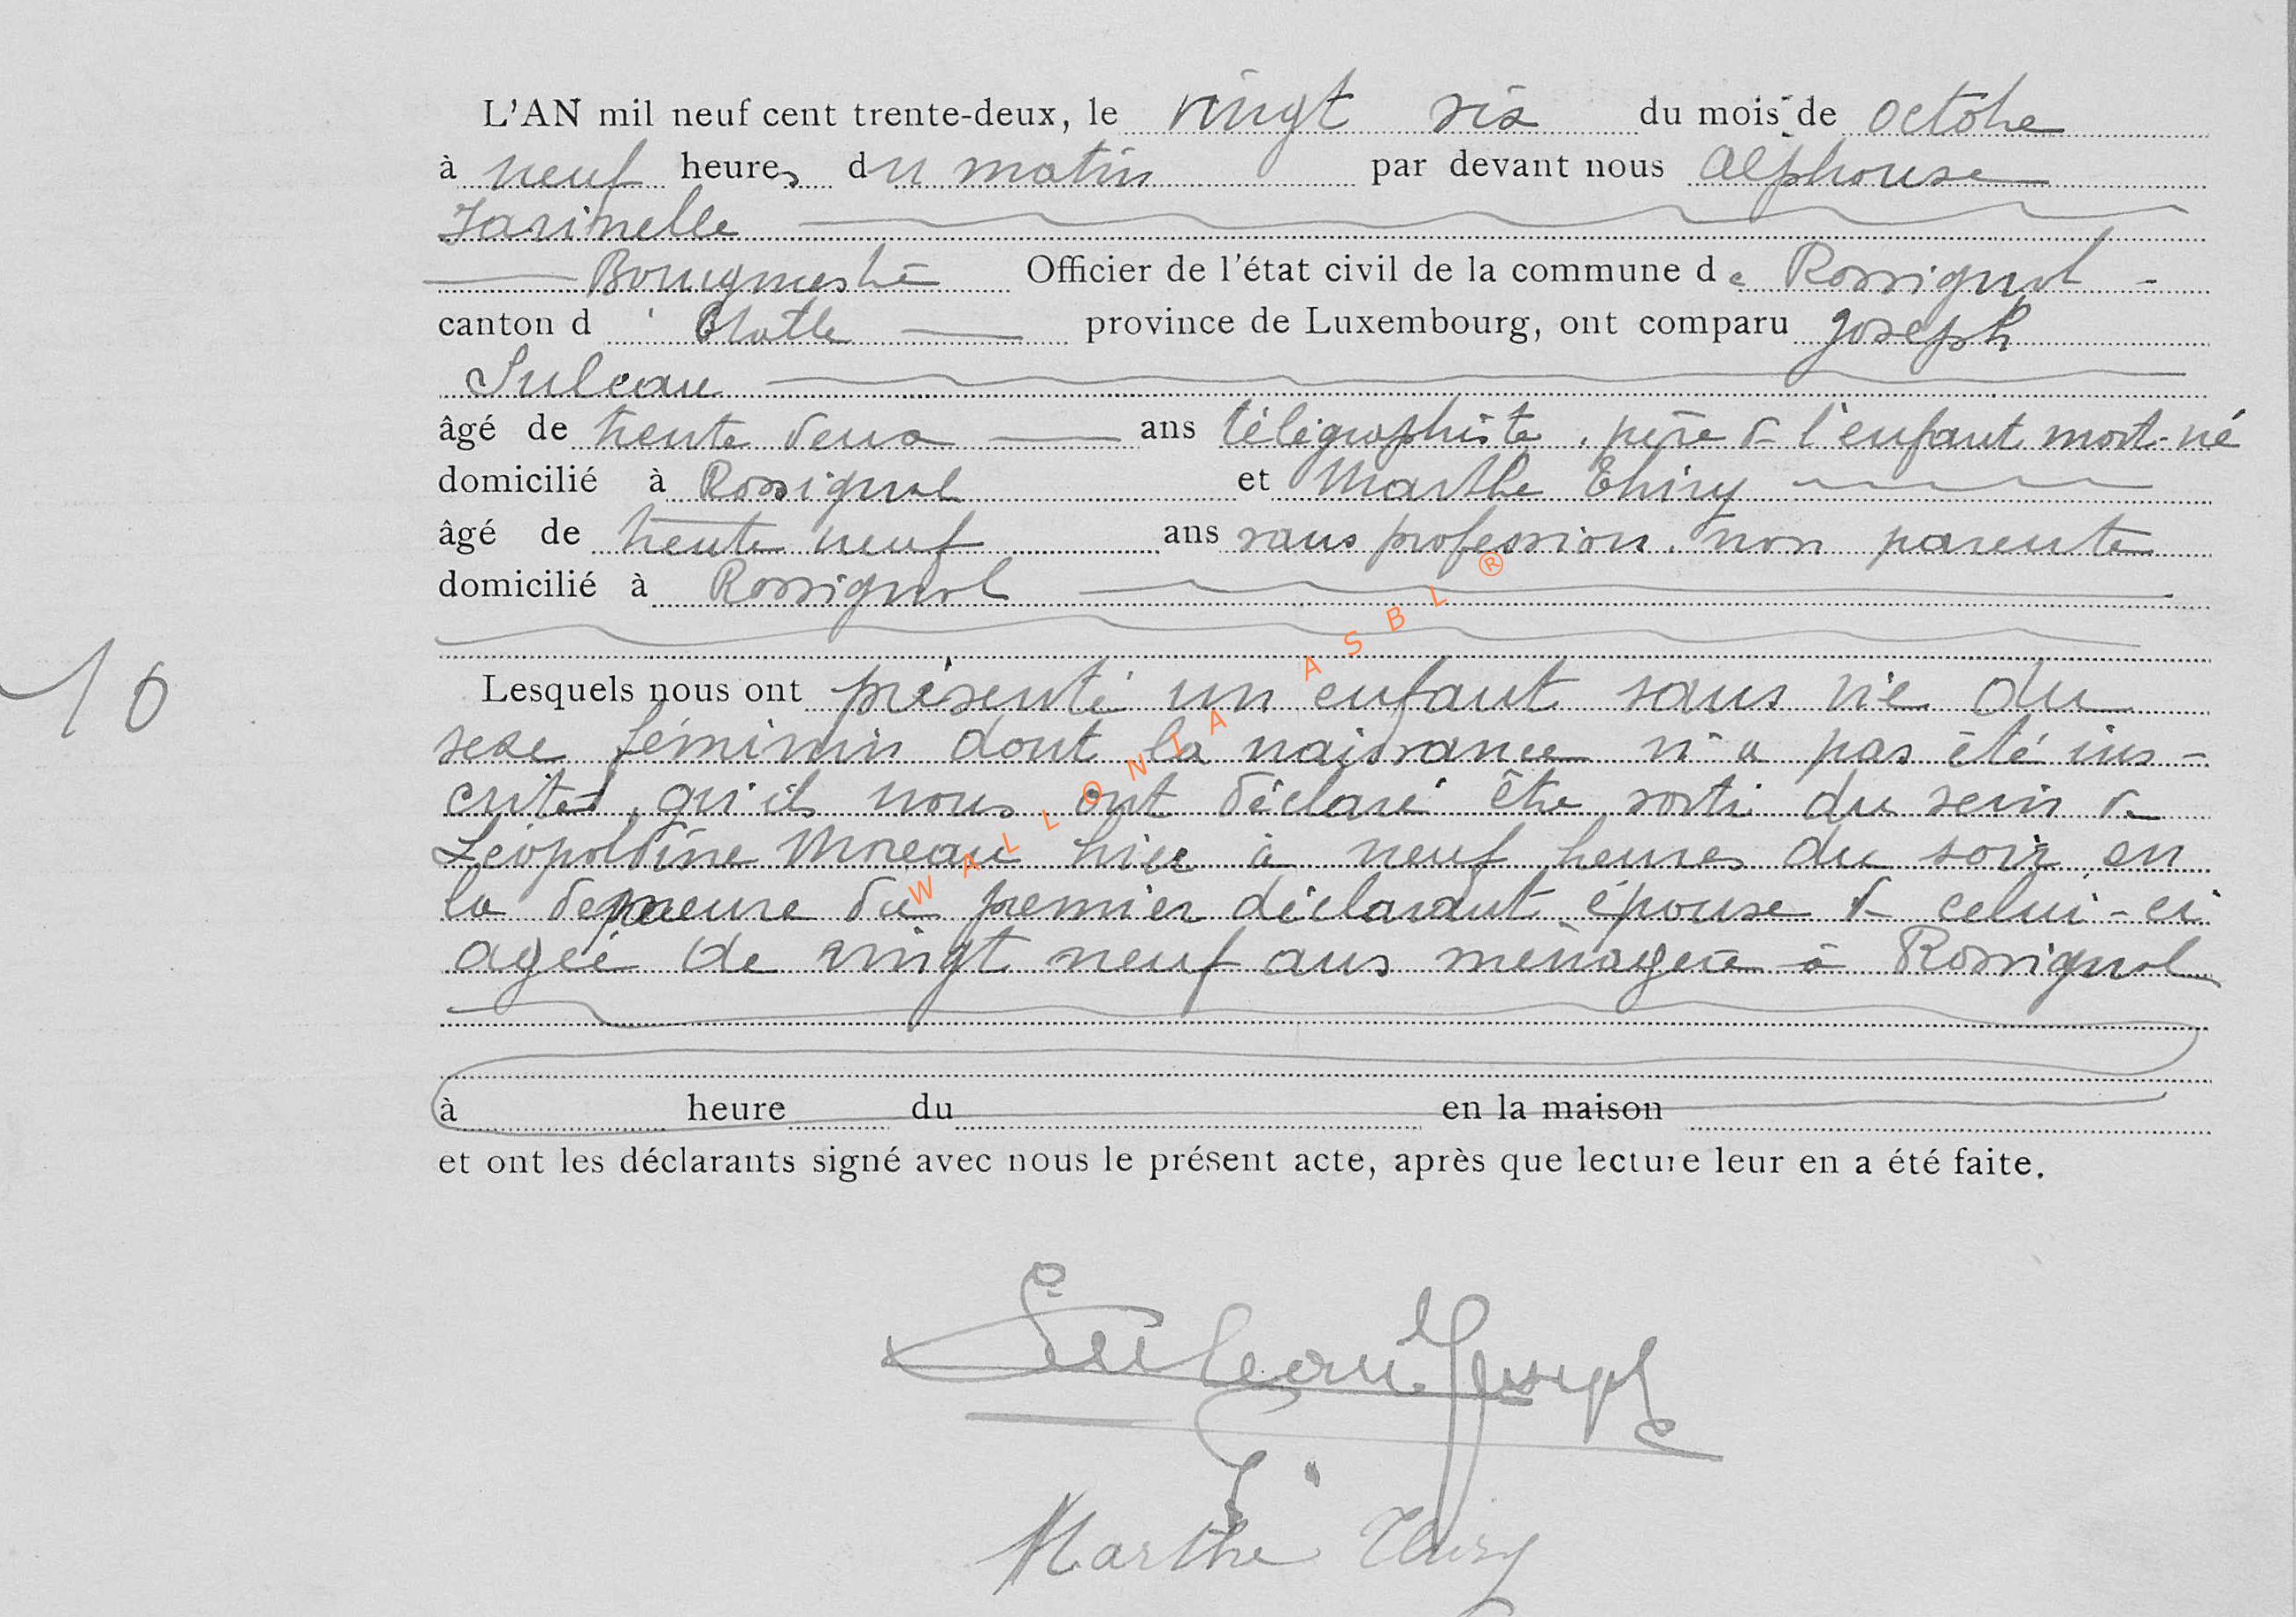 L'AN mil neuf cent trente-deux, le vingt six du mois de octobre
à neuf heures du matin par devant nous Alphonse
Jacinelle
Bourgmestre Officier de l'état civil de la commune de Rossignol
canton d'Etalle province de Luxembourg, ont comparu Joseph
Suleau
âgé de trente deux ans télégraphiste, père de l'enfant mort-né
domicilié à Rossignol et Marthe Thiry
âgé de trente neuf ans sans profession. non parente
domicilié à Rossignol
10
Lesquels nous ont présenté un enfant sans vie du
sexe féminin dont la naissance n'a pas été ins-
crite, qu'ils nous ont déclaré être sorti du sein de
Léopoldine Moreau hier à neuf heures du soir en
la demeure du premier déclarant, épouse de celui-ci
agée de vingt neuf ans ménagère à Rossignol
à heure du en la maison
et ont les déclarants signé avec nous le présent acte, après que lecture leur en a été faite.
Suleau Joseph
Marthe Thiry
WALLONIA ASBL ®